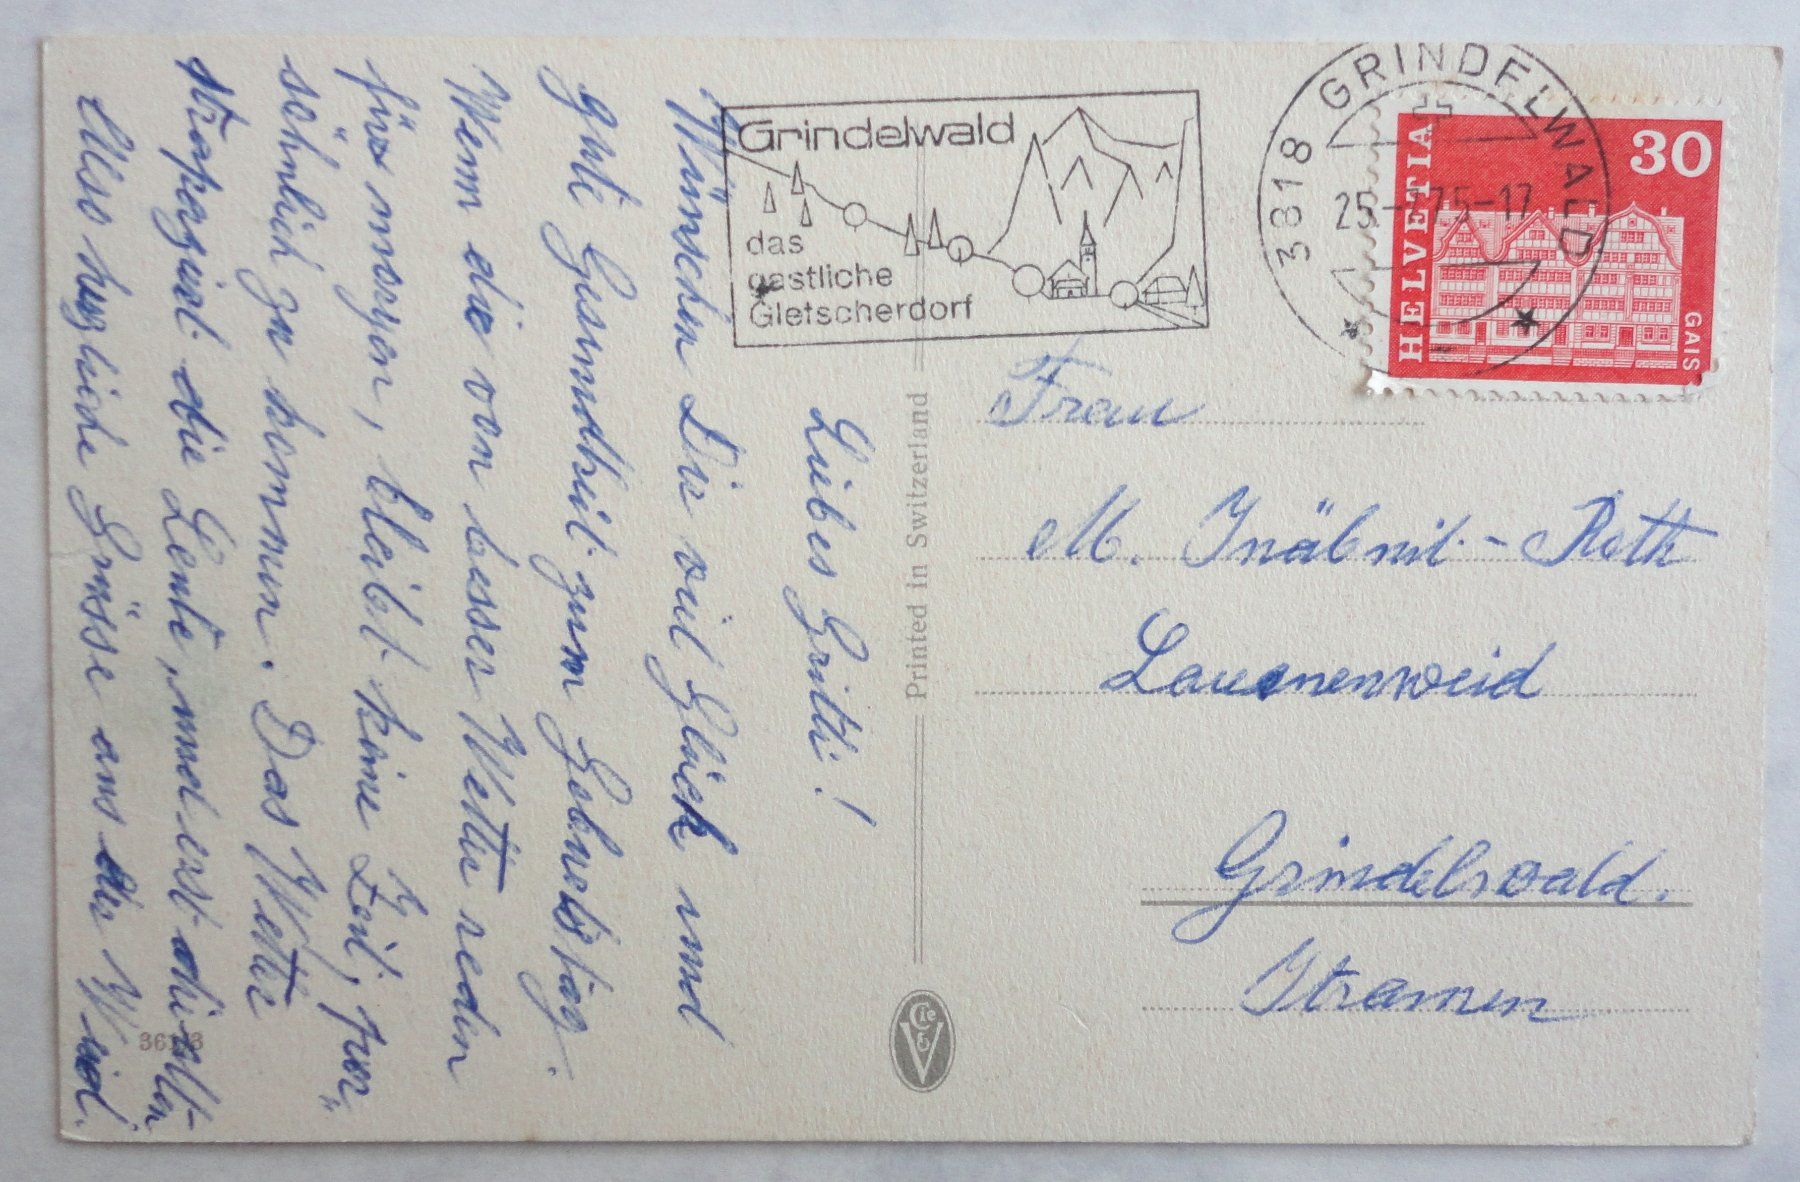 Liebes Gritli!
Wünschen Dir viel Glück und
gute Gesundheit zum Geburtstag.
Wenn die von besser Wetter reden
für morgen, bleibt keine Zeit, per-
söhnlich zu kommen. Das Wetter
strapaziert die Leute, und erst die
Also herzliche Grüsse aus der Weid.
36
Printed in Switzerland
Grindelwald
das
gastliche
Gletscherdorf
3818 GRINDELWALD
25 75-17
HELVETIA
30
GAIS
Frau
M. Inäbnit-Roth
Lauenenweid
Grindelwald.
Itramen